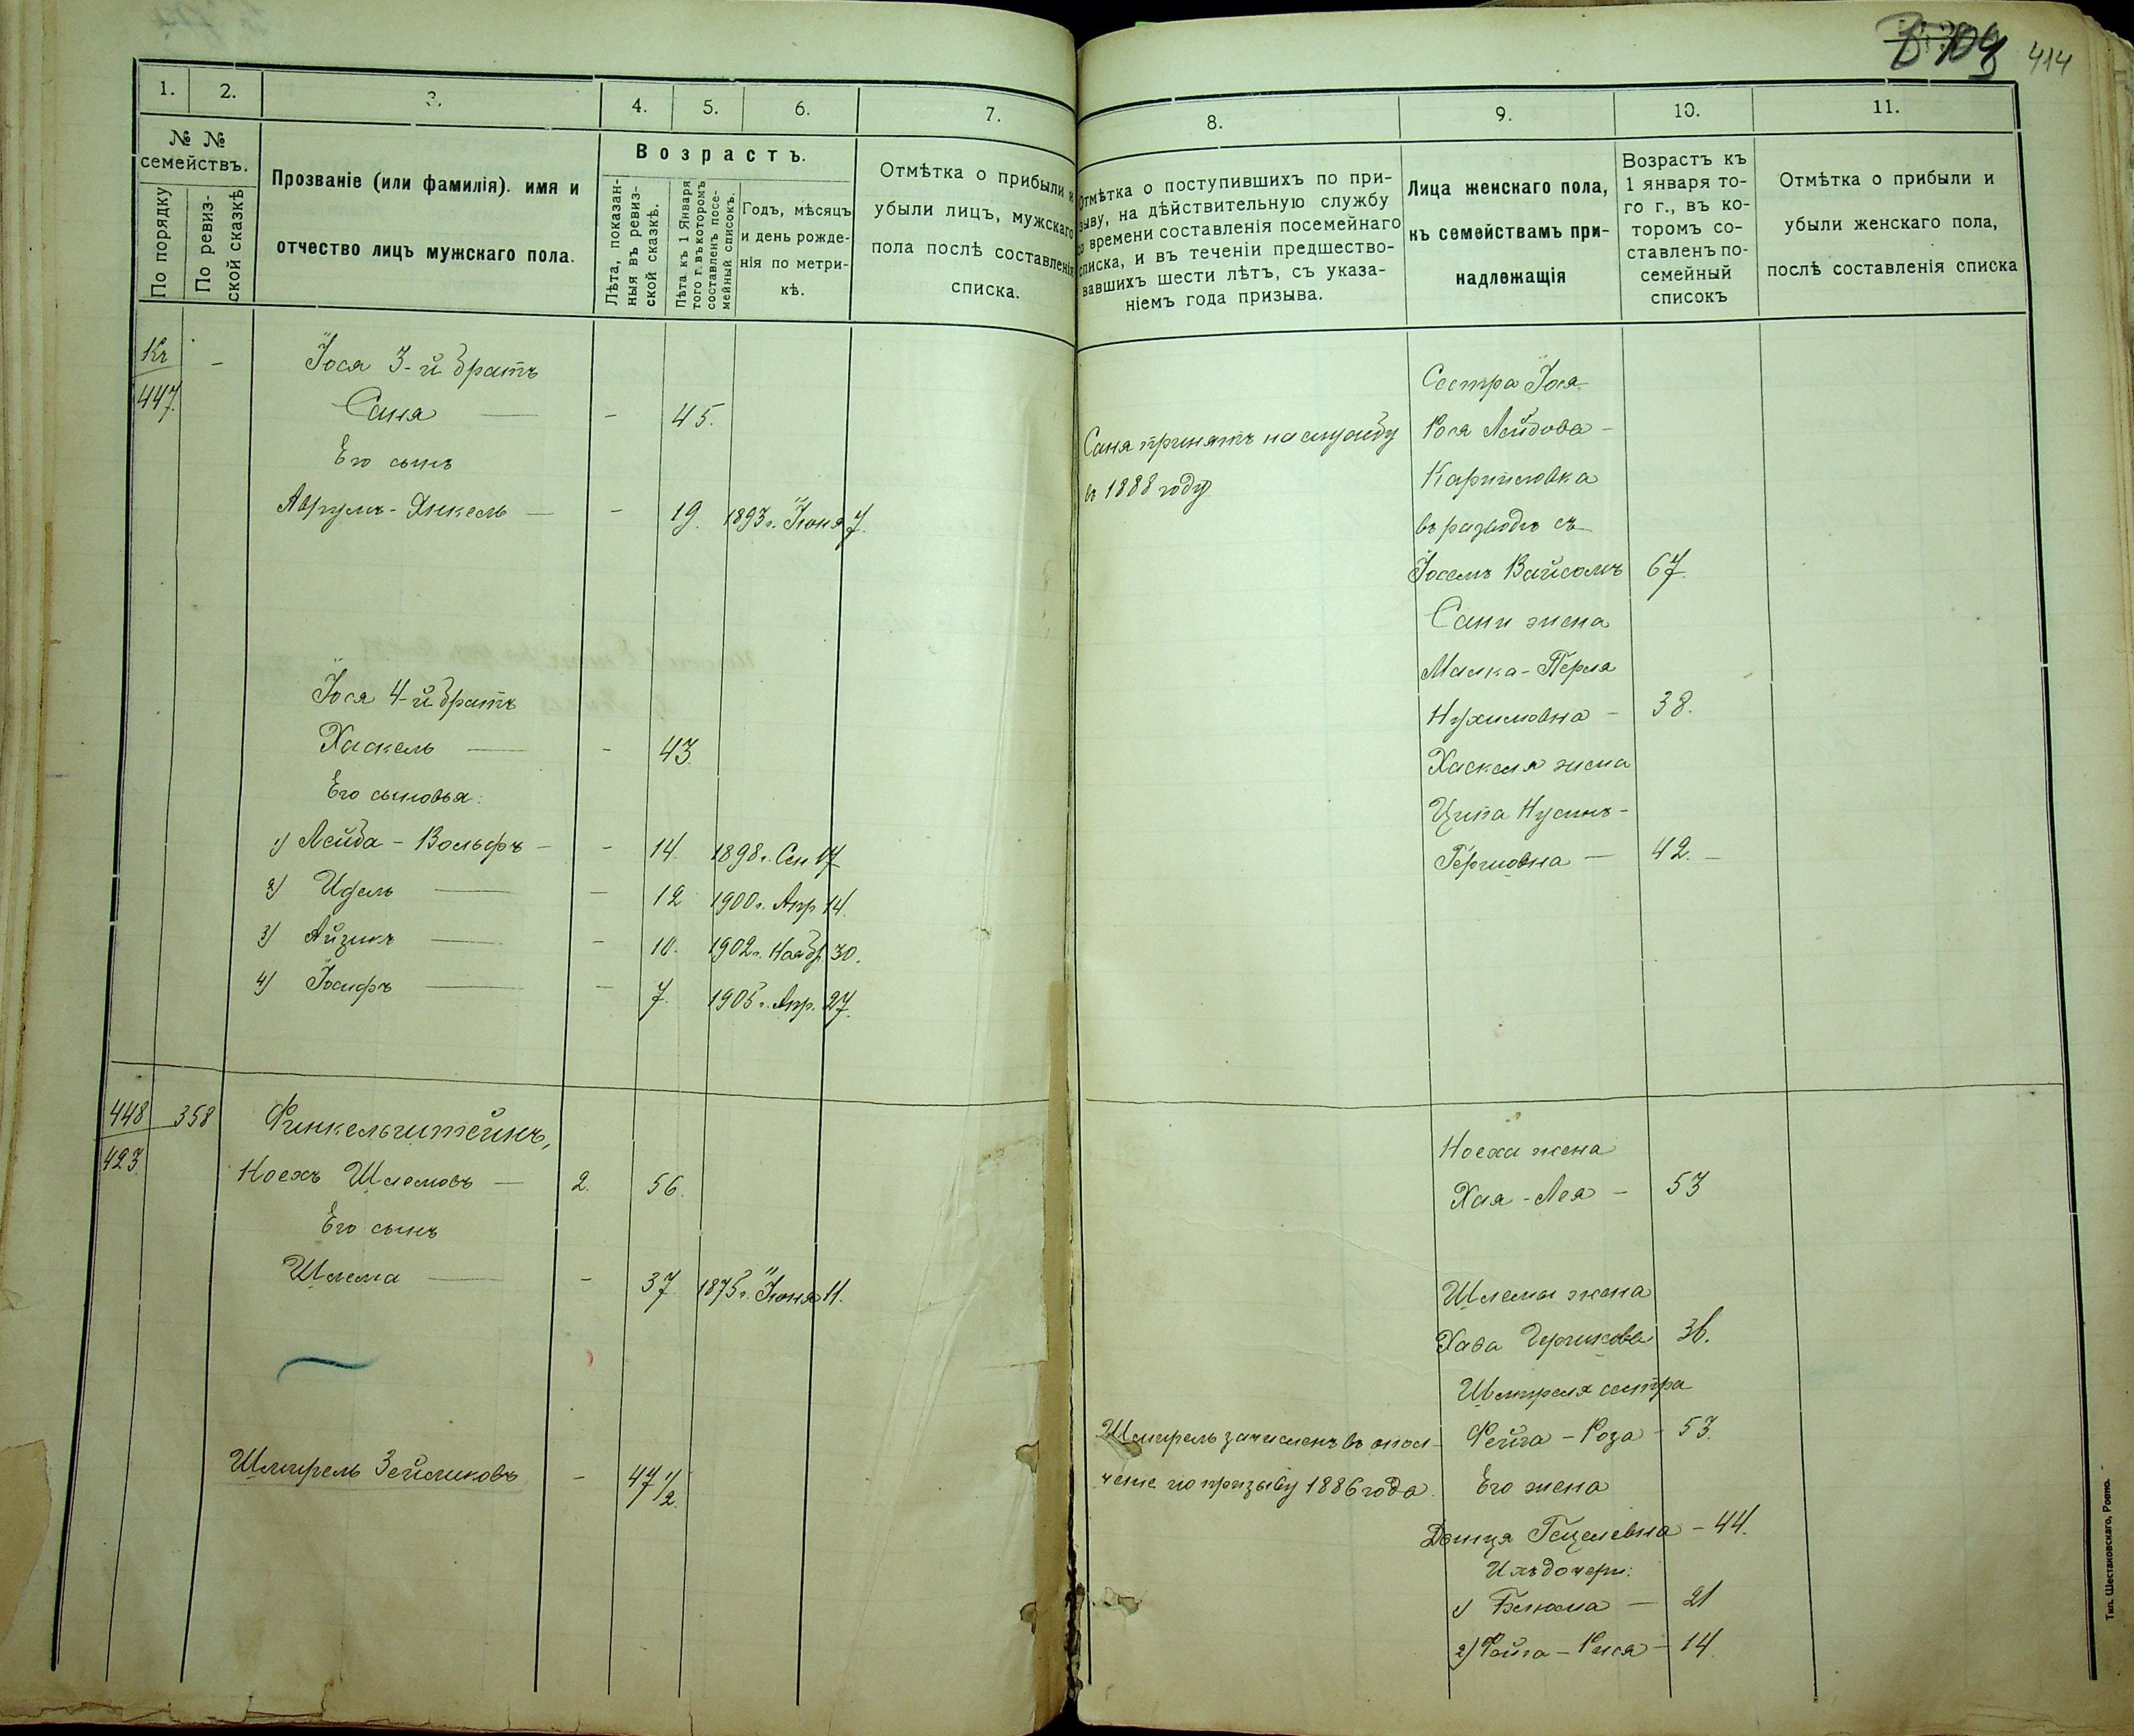 414
1.
2.
3.
4.
5.
6.
7.
№ №
семействъ.
По порядку
По ревиз-
ской сказкѣ
Прозваніе (или фамилія). имя и
отчество лицъ мужскаго пола.
Возрастъ.
Лѣта, показан-
ныя въ ревиз-
ской сказкѣ.
Лѣта къ 1 Января
того г. въ которомъ
составленъ посе-
мейный списокъ.
Годъ, мѣсяцъ
и день рожде-
нія по метри-
кѣ.
Отмѣтка о прибыли и
убыли лицъ, мужскаго
пола послѣ составленія
списка.
Къ
447.
Іося 3-й братъ
Саня — - 45.
Его сынъ
Аврумъ-Янкель — - 19. 1893 г. Іюня 7.
Іося 4-й братъ
Хаскель — - 43
Его сыновья:
1) Лейба - Вольфъ - - 14. 1898 г. Сен 17
2) Идель — - 12 1900 г. Апр 14.
3) Айзикъ — - 10. 1902 г. Нояб. 30.
4) Іосифъ — - 7. 1905 г. Апр. 27.
448 358 Финкельштейнъ,
423.
Ноехъ Шлемовъ — 2. 56.
Его сынъ
Шлема — - 37 1875 г. Іюня 11.
Шмирель Зейликовъ - 47 1/2.
8.
9.
10.
11.
Отмѣтка о поступившихъ по при-
зыву, на дѣйствительную службу
со времени составленія посемейнаго
списка, и въ теченіи предшество-
вавшихъ шести лѣтъ, съ указа-
ніемъ года призыва.
Лица женскаго пола,
къ семействамъ при-
надлежащія
Возрастъ къ
1 января то-
го г., въ ко-
торомъ со-
ставленъ по-
семейный
списокъ
Отмѣтка о прибыли и
убыли женскаго пола,
послѣ составленія списка
Саня принятъ на службу
въ 1888 году
Сестра Іося
Рося Лейбова -
въ разводѣ съ
Іосемъ Вайсомъ 67.
Сани жена
Малка-Перля
Нухимовна - 38.
Хаскеля жена
Ципа Нусинъ-
Гершовна — 42. -
Ноеха жена
Хая-Лея - 53
Шлемы жена
Хава 36.
Шмиреля сестра
Фейга - Роза - 53.
Шмирель зачисленъ въ опол-
ченіе по призыву 1886 года
Его жена
Гецелевна - 44.
Ихъ дочери:
1) — 21
2) Фейга - Рися - 14.
Тип. Шестаковскаго, Ровно.